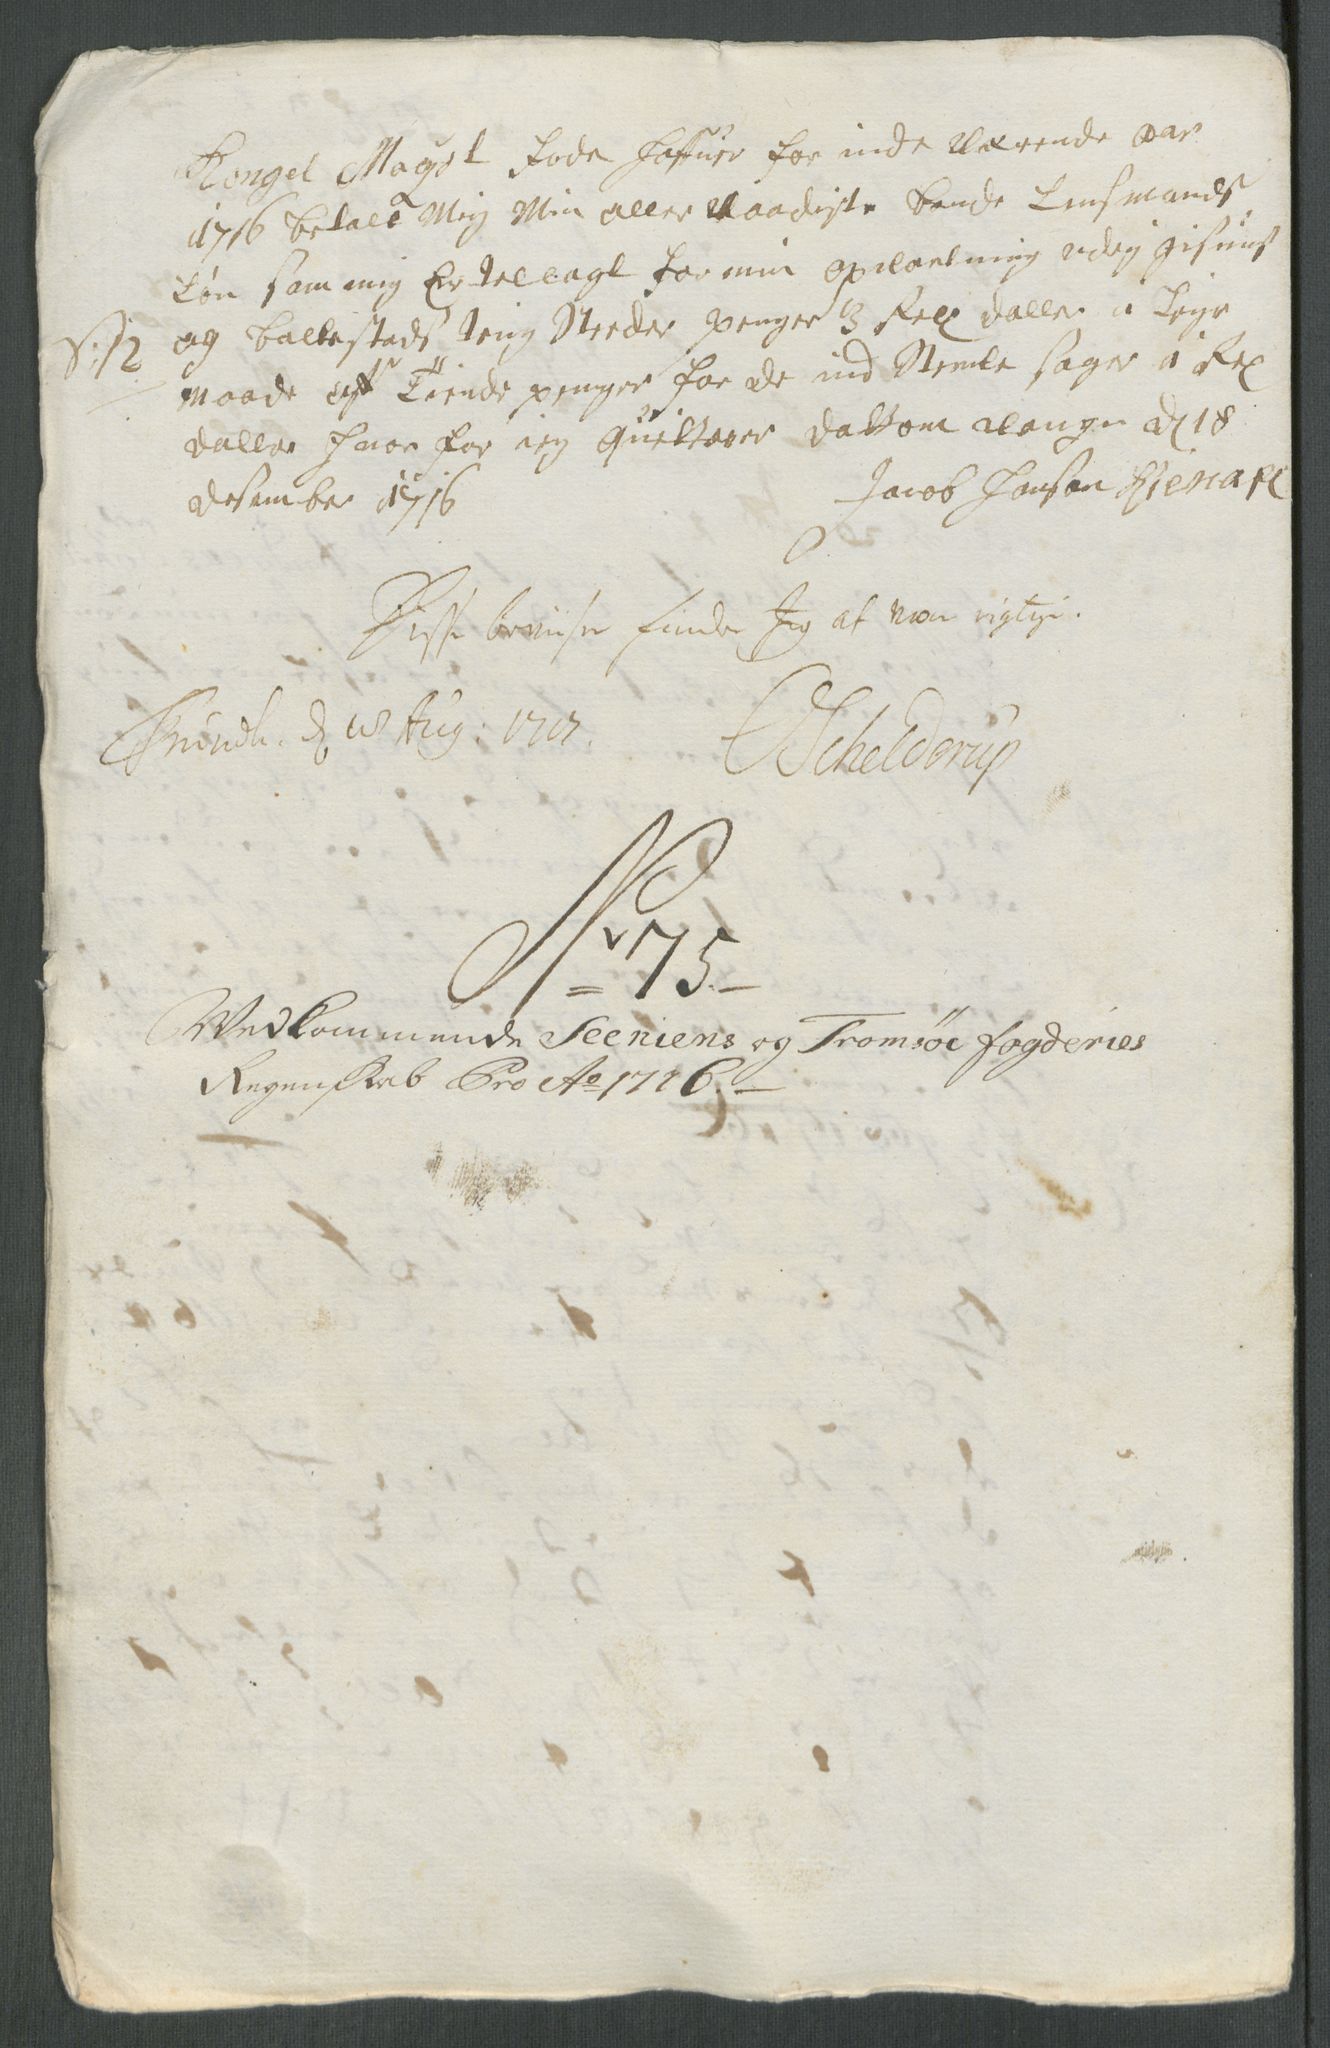 Kongel Mayst fode haffuer for inde Værende aar
1716 betalt Mig Min aller Naadigste bonde Lensmands
Løn som mig Er tellagt for min opvartning udj Gisuns
og ballestads ting Steder penger 3 Rex daller i Lige
Maade aff Tiende penger for de ind Stemte sager 1 Rex
daller huor for ieg Quitterer dattom Vangn d 18
desember 1716
Jacob Hansen
Disse beviiser finder Jeg at være rigtige.
Trundh. d 18 Aug: 1717.
Schelderup
No 75.
Vedkommende Seeniens og Tromsøe fogderies
Regenskab Pro Ao 1716.